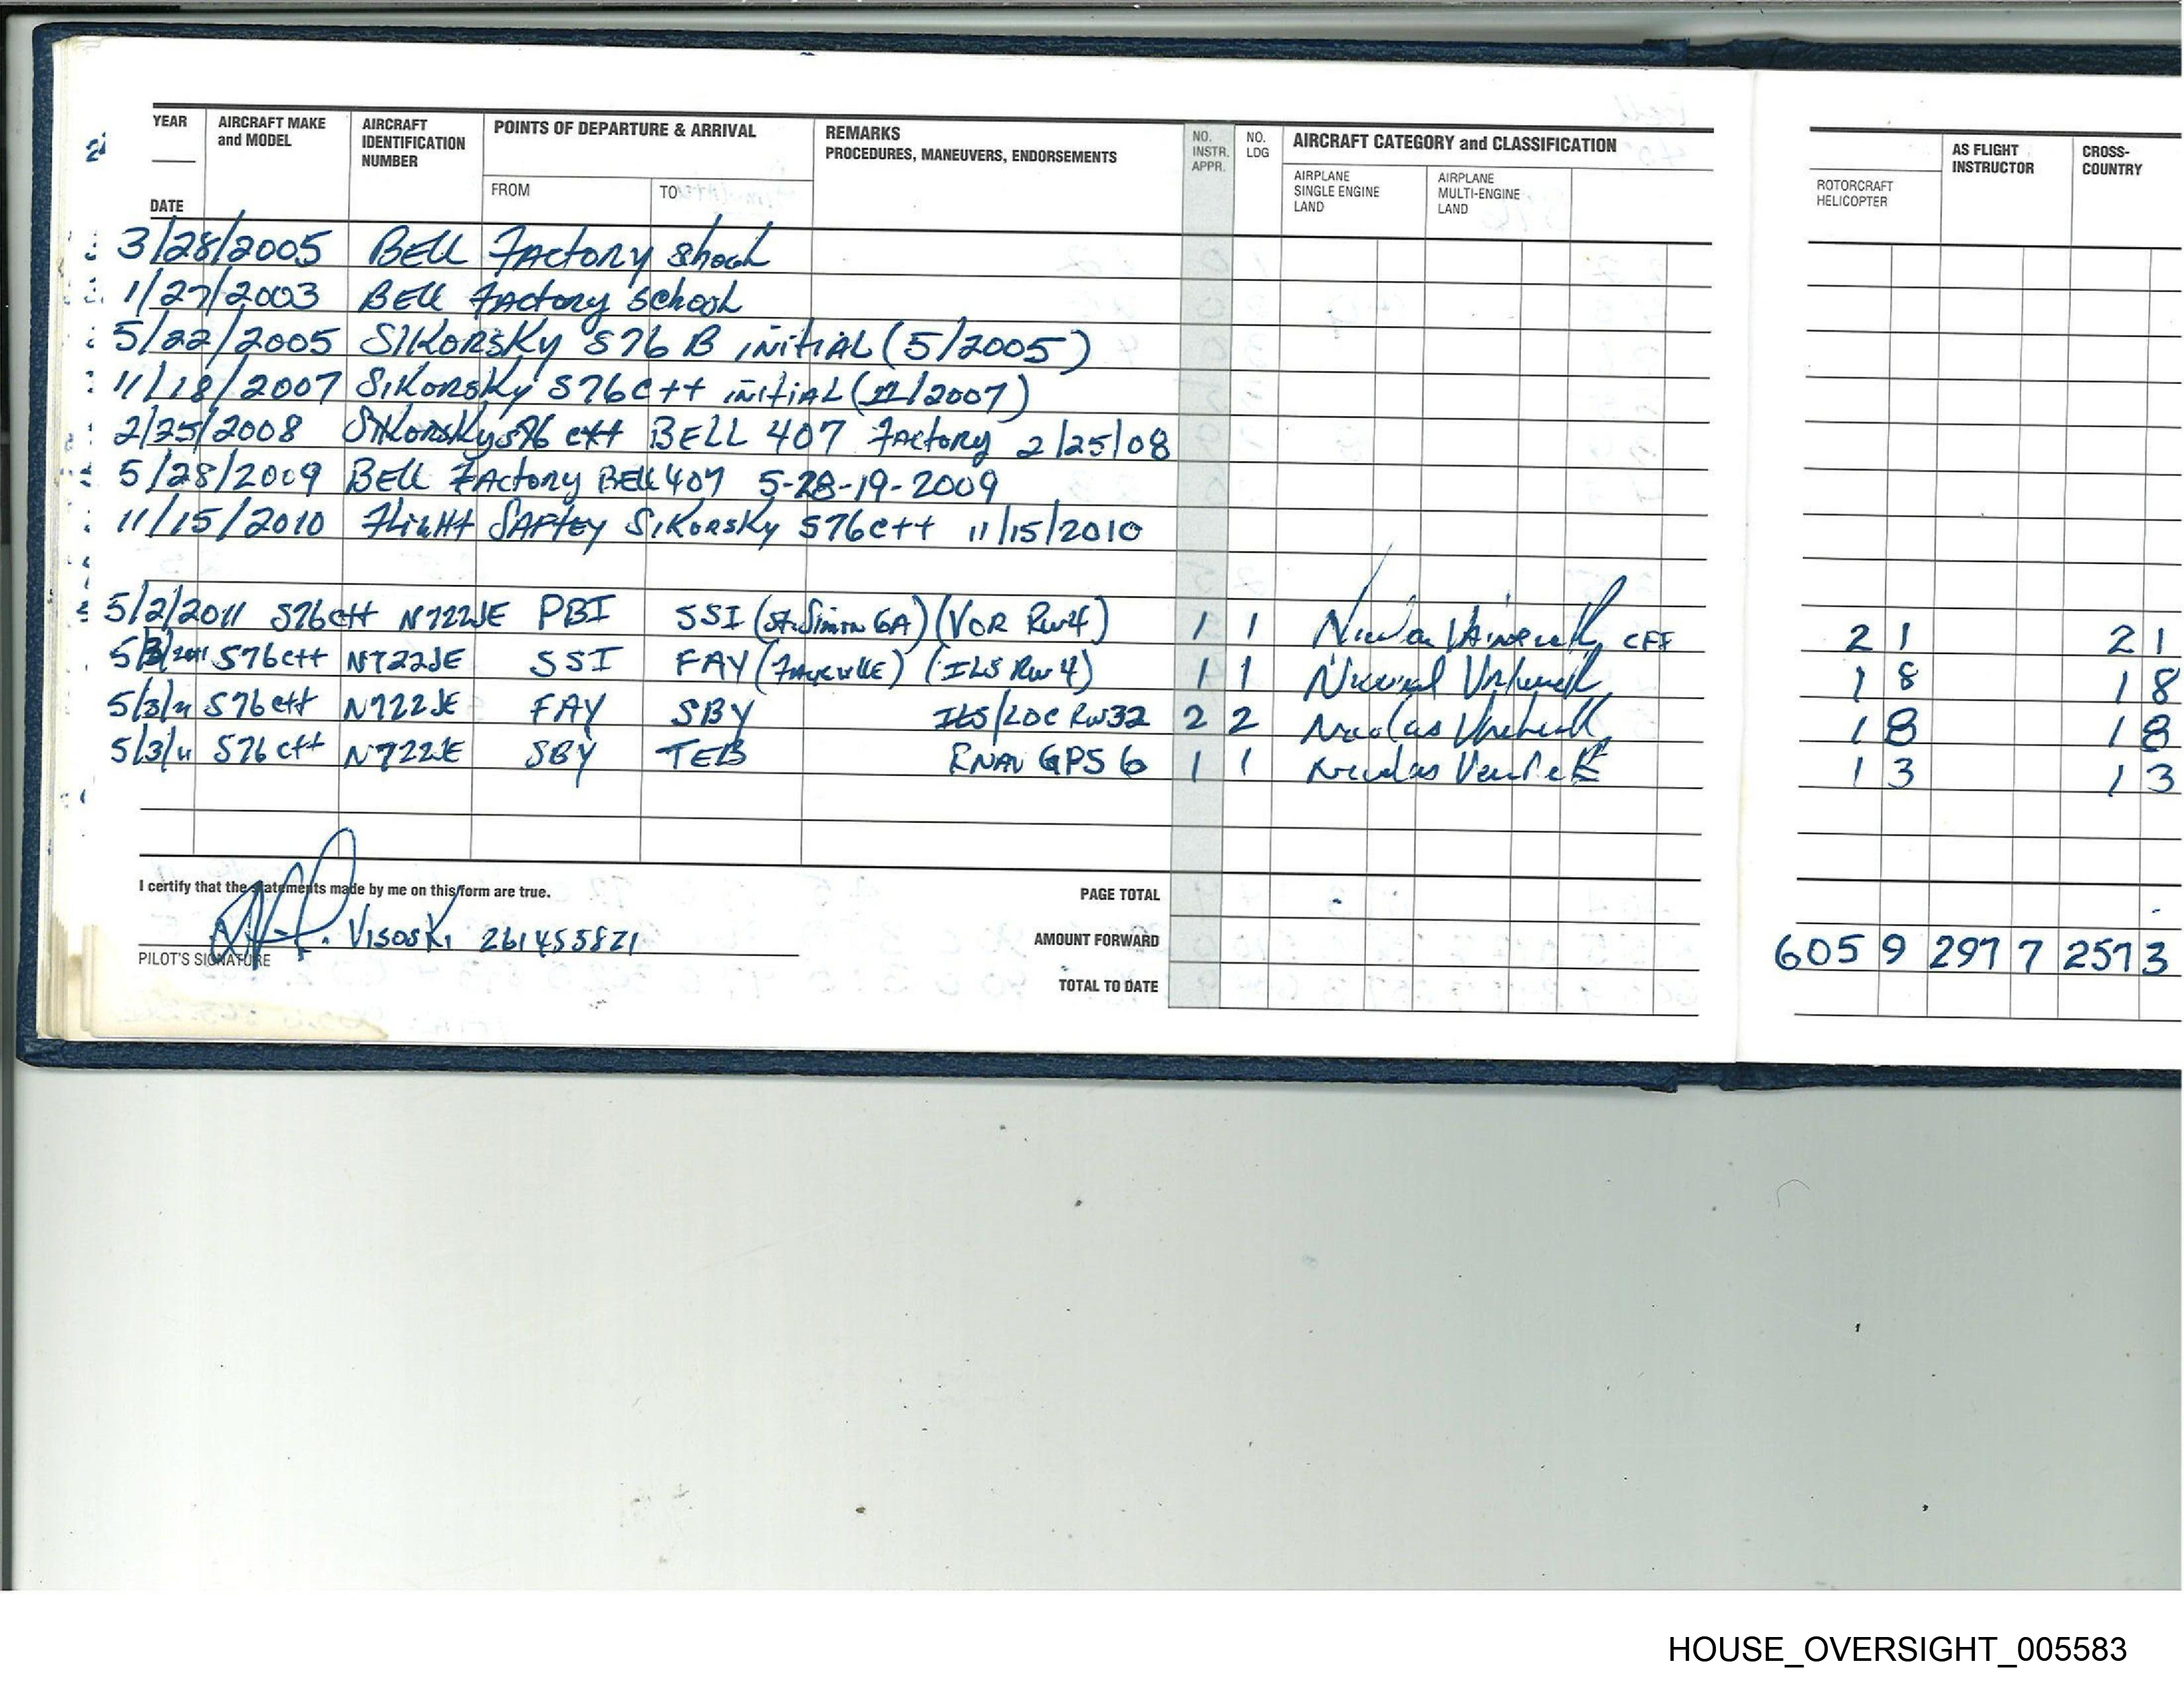 YEAR
DATE
AIRCRAFT MAKE
and MODEL
AIRCRAFT
IDENTIFICATION
NUMBER
POINTS OF DEPARTURE & ARRIVAL
FROM
TO
REMARKS
PROCEDURES, MANEUVERS, ENDORSEMENTS
NO.
INSTR.
APPR.
NO.
LDG
AIRCRAFT CATEGORY and CLASSIFICATION
AIRPLANE
SINGLE ENGINE
LAND
AIRPLANE
MULTI-ENGINE
LAND
ROTORCRAFT
HELICOPTER
AS FLIGHT
INSTRUCTOR
CROSS-
COUNTRY
3/28/2005 BELL FACTORY
1/27/2003 BELL FACTORY School
5/22/2005 SIKORSKY S76 B INITIAL (5/2005)
11/18/2007 SIKORSKY S76C++ INITIAL (11/2007)
2/25/2008 SIKORSKY S76 C++ BELL 407 FACTORY 2/25/08
5/28/2009 BELL FACTORY BELL 407 5-28-19-2009
11/15/2010 FLIGHT SAFTEY SIKORSKY S76C++ 11/15/2010
5/2/2011 S76C++ N722JE PBI SSI (St. Simon GA) (VOR RW4) 1 1 CFI 2 1 2 1
5/3/2011 S76C++ N722JE SSI FAY (ILS RW 4) 1 1 1 8 1 8
5/3/11 S76 C++ N722JE FAY SBY ILS/LOC RW32 2 2 Nicolas 1 8 1 8
5/3/11 S76 C++ N722JE SBY TEB RNAV GPS 6 1 1 Nicolas 1 3 1 3
I certify that the statements made by me on this form are true.
VISOSKI 261455821
PILOT'S SIGNATURE
PAGE TOTAL
AMOUNT FORWARD 6059 2977 2573
TOTAL TO DATE
HOUSE_OVERSIGHT_005583